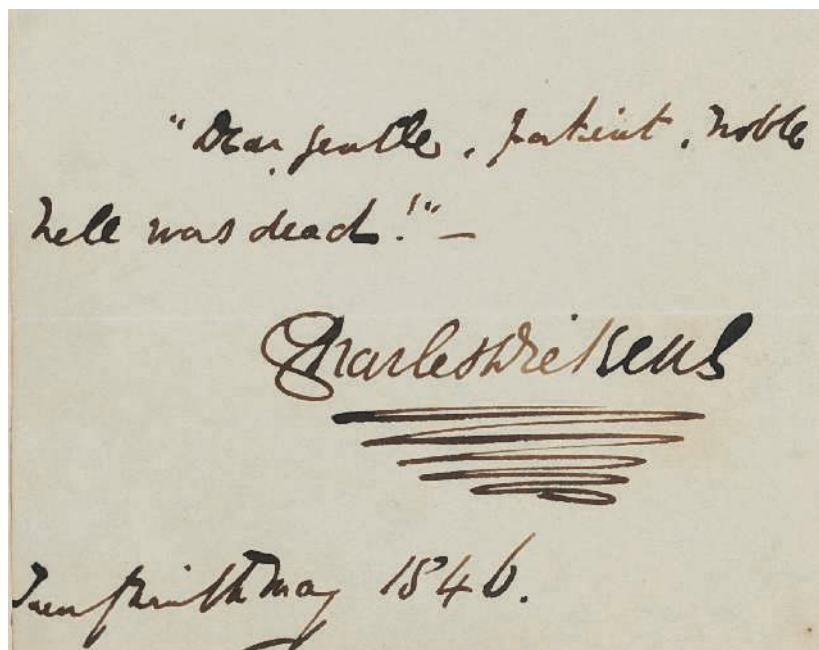 "Dear, gentle, patient, noble
Nell was dead!"—
Charles Dickens
May 1846.